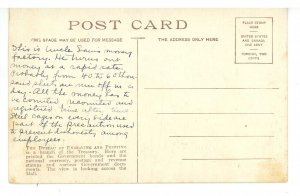 POST CARD
THIS SPACE MAY BE USED FOR MESSAGE
THE ADDRESS ONLY HERE
PLACE STAMP
HERE
UNITED STATES
AND CANADA
ONE CENT
FOREIGN, TWO
CENTS
This is Uncle Sam's money
factory. He turns out
money at a rapid rate.
Probably from 40 to 60 thou
sand sheets are run off in a
day. All the money has to
be counted, recounted and
registered time after time
Steel cages on every side are
part of the precaution used
to prevent dishonesty among
employees.
THE BUREAU OF ENGRAVING AND PRINTING
is a branch of the Treasury. Here are
printed the Government bonds and the
national currency, postage and revenue
stamps and various Government docu-
ments. The view is looking across the
Mall.